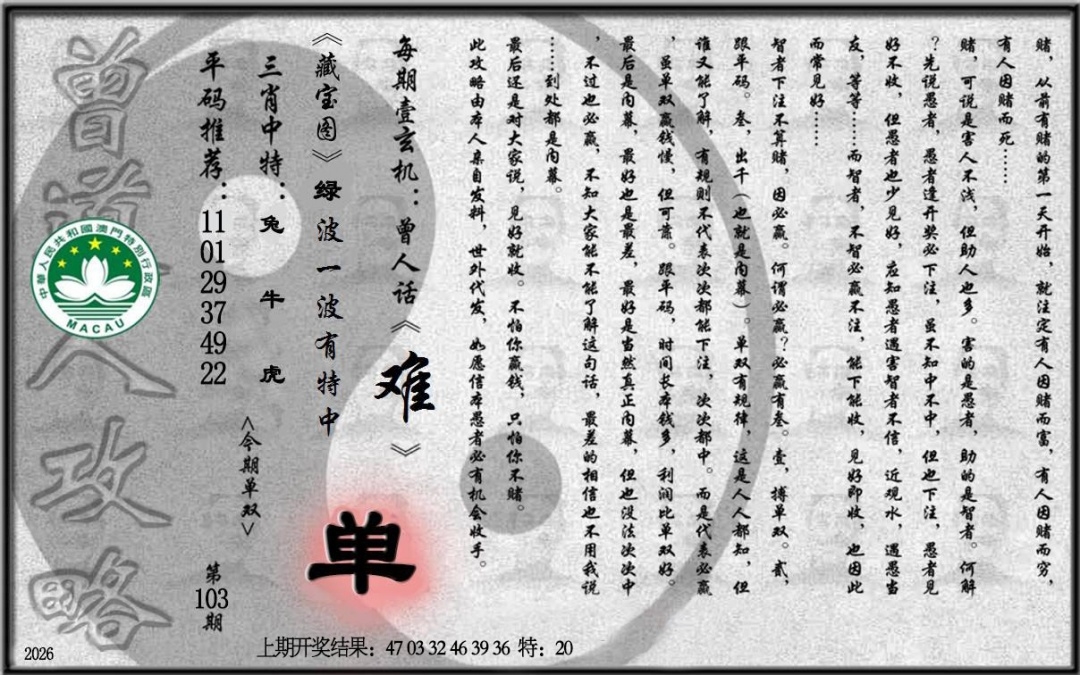 赌，从前有赌的第一天开始，就注定有人因赌而富，有人因赌而穷，
有人因赌而死……
赌，可说是害人不浅，但助人也多。害的是愚者，助的是智者。何解
？先说愚者，愚者逢开奖必下注，虽不知中不中，但也下注，愚者见
好不收，但愚者也少见好，应知愚者遇害智者不信，近观水，遇愚当
友，等等……而智者，不智必赢不注，能下能收，见好即收，也因此
而常见好……
智者下注不算赌，因必赢。何谓必赢？必赢有叁。壹，搏单双。贰，
跟平码。叁，出千（也就是内幕）。单双有规律，这是人人都知，但
谁又能了解，有规则不代表次次都能下注，次次都中。而是代表必赢
，虽单双赢钱慢，但可靠。跟平码，时间长本钱多，利润比单双好。
最后是内幕，最好也是最差，最好是当然真正内幕，但也没法次次中
，不过也必赢，不知大家能不能了解这句话，最差的相信也不用我说
……到处都是内幕。
最后还是对大家说，见好就收。不怕你赢钱，只怕你不赌。
此攻略由本人亲自发料，世外代发，如愿信本愚者必有机会收手。
每期壹玄机：曾人话《难》
《藏宝图》绿波一波有特中
单
三肖中特：兔 牛 虎
<今期单双>
平码推荐：11 01 29 37 49 22
第103期
曾道人攻略
中華人民共和國澳門特別行政區
MACAU
2026
上期开奖结果：47 03 32 46 39 36 特：20